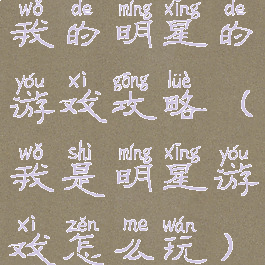 wǒ de míng xīng de
我的明星的
yóu xì gōng lüè
游戏攻略（
wǒ shì míng xīng yóu
我是明星游
xì zěn me wán
戏怎么玩）